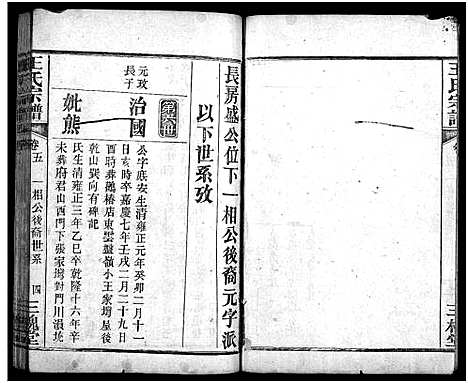 王氏宗譜
三槐堂
長房盛公位下一相公後裔元字派
以下世系攷
第六世
元攻長子
治國
公字底安生清雍正元年癸卯二月十一
日亥時卒嘉慶七年壬戌二月二十九日
酉時葬樾椿店東雲盤嶺小王家塆屋後
乾山巽向有碑記
妣熊
氏生清雍正三年乙巳卒乾隆十六年辛
未葬府君山西門下張家塆對門川浪坑
王氏宗譜
卷五
一相公後裔世系
四
三槐堂